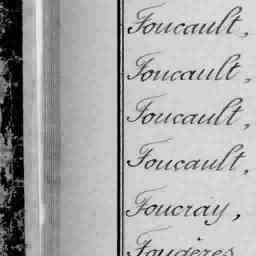 Foucault,
Foucault,
Foucault,
Foucault,
Foucray,
Fougères